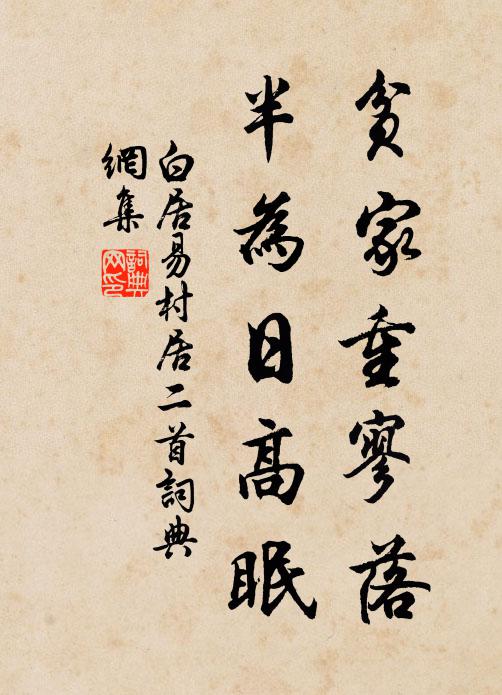 貧家重寥落
半為日高眠
白居易村居二首詞典
網集
詞典
网印